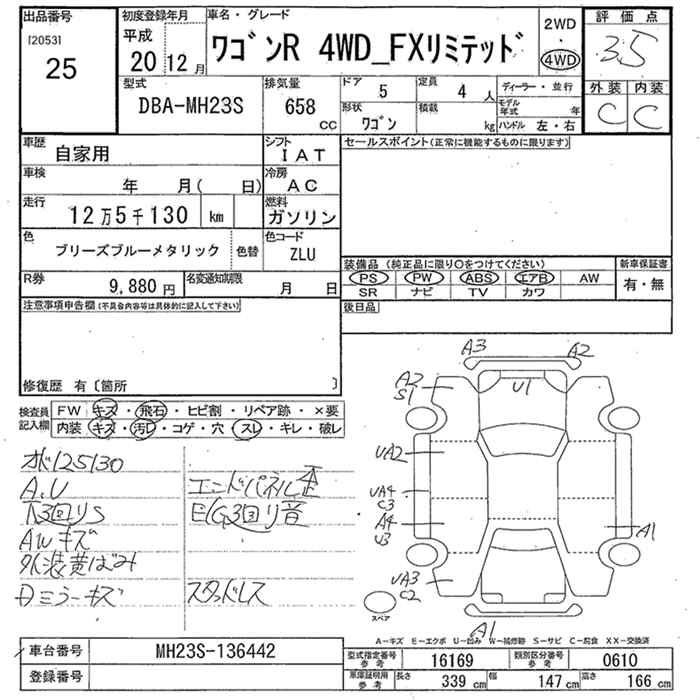 出品番号
[2053]
25
初度登録年月
平成
20 12月
車名・グレード
ワゴンR 4WD_FXリミテッド
2WD
・
4WD
評価点
3.5
外装 内装
C C
型式
DBA-MH23S
排気量
658
CC
ドア
5
定員
4 人
ディーラー・並行
モデル年式 年
形状
ワゴン
積載
kg
ハンドル 左・右
車歴
自家用
シフト
IAT
車検
年 月( 日)
冷房
AC
走行
12万5千130 km
燃料
ガソリン
色
ブリーズブルーメタリック
色替
色コード
ZLU
R券
9,880円
名変通知期限
月 日
セールスポイント(正常に機能するものに限ります)
装備品(純正品に限り○をつけてください)
PS PW ABS エアB AW
SR ナビ TV カワ
新車保証書
有・無
後日品
注意事項申告欄(不具合内容等は具体的に記入して下さい)
修復歴 有〔箇所 〕
検査員記入欄
FW キズ・飛石・ヒビ割・リペア跡・×要
内装 キズ・汚レ・コゲ・穴・スレ・キレ・破レ
オド125130
A.U
下3回りS
AWキズ
外装黄ばみ
Dミラーキズ
エンドパネル歪
E/G3回り音
スタッドレス
A3 A2
A2
S1
U1
UA2
UA4
C3
A4
U3
A1
UA3
C2
A1
スペア
A-キズ E-エクボ U-凹み W-補修跡 S-サビ C-腐食 XX-交換済
車台番号
MH23S-136442
登録番号
型式指定番号
参考
16169
類別区分番号
参考
0610
車庫証明用
参考
長さ
339 cm
幅
147 cm
高さ
166 cm